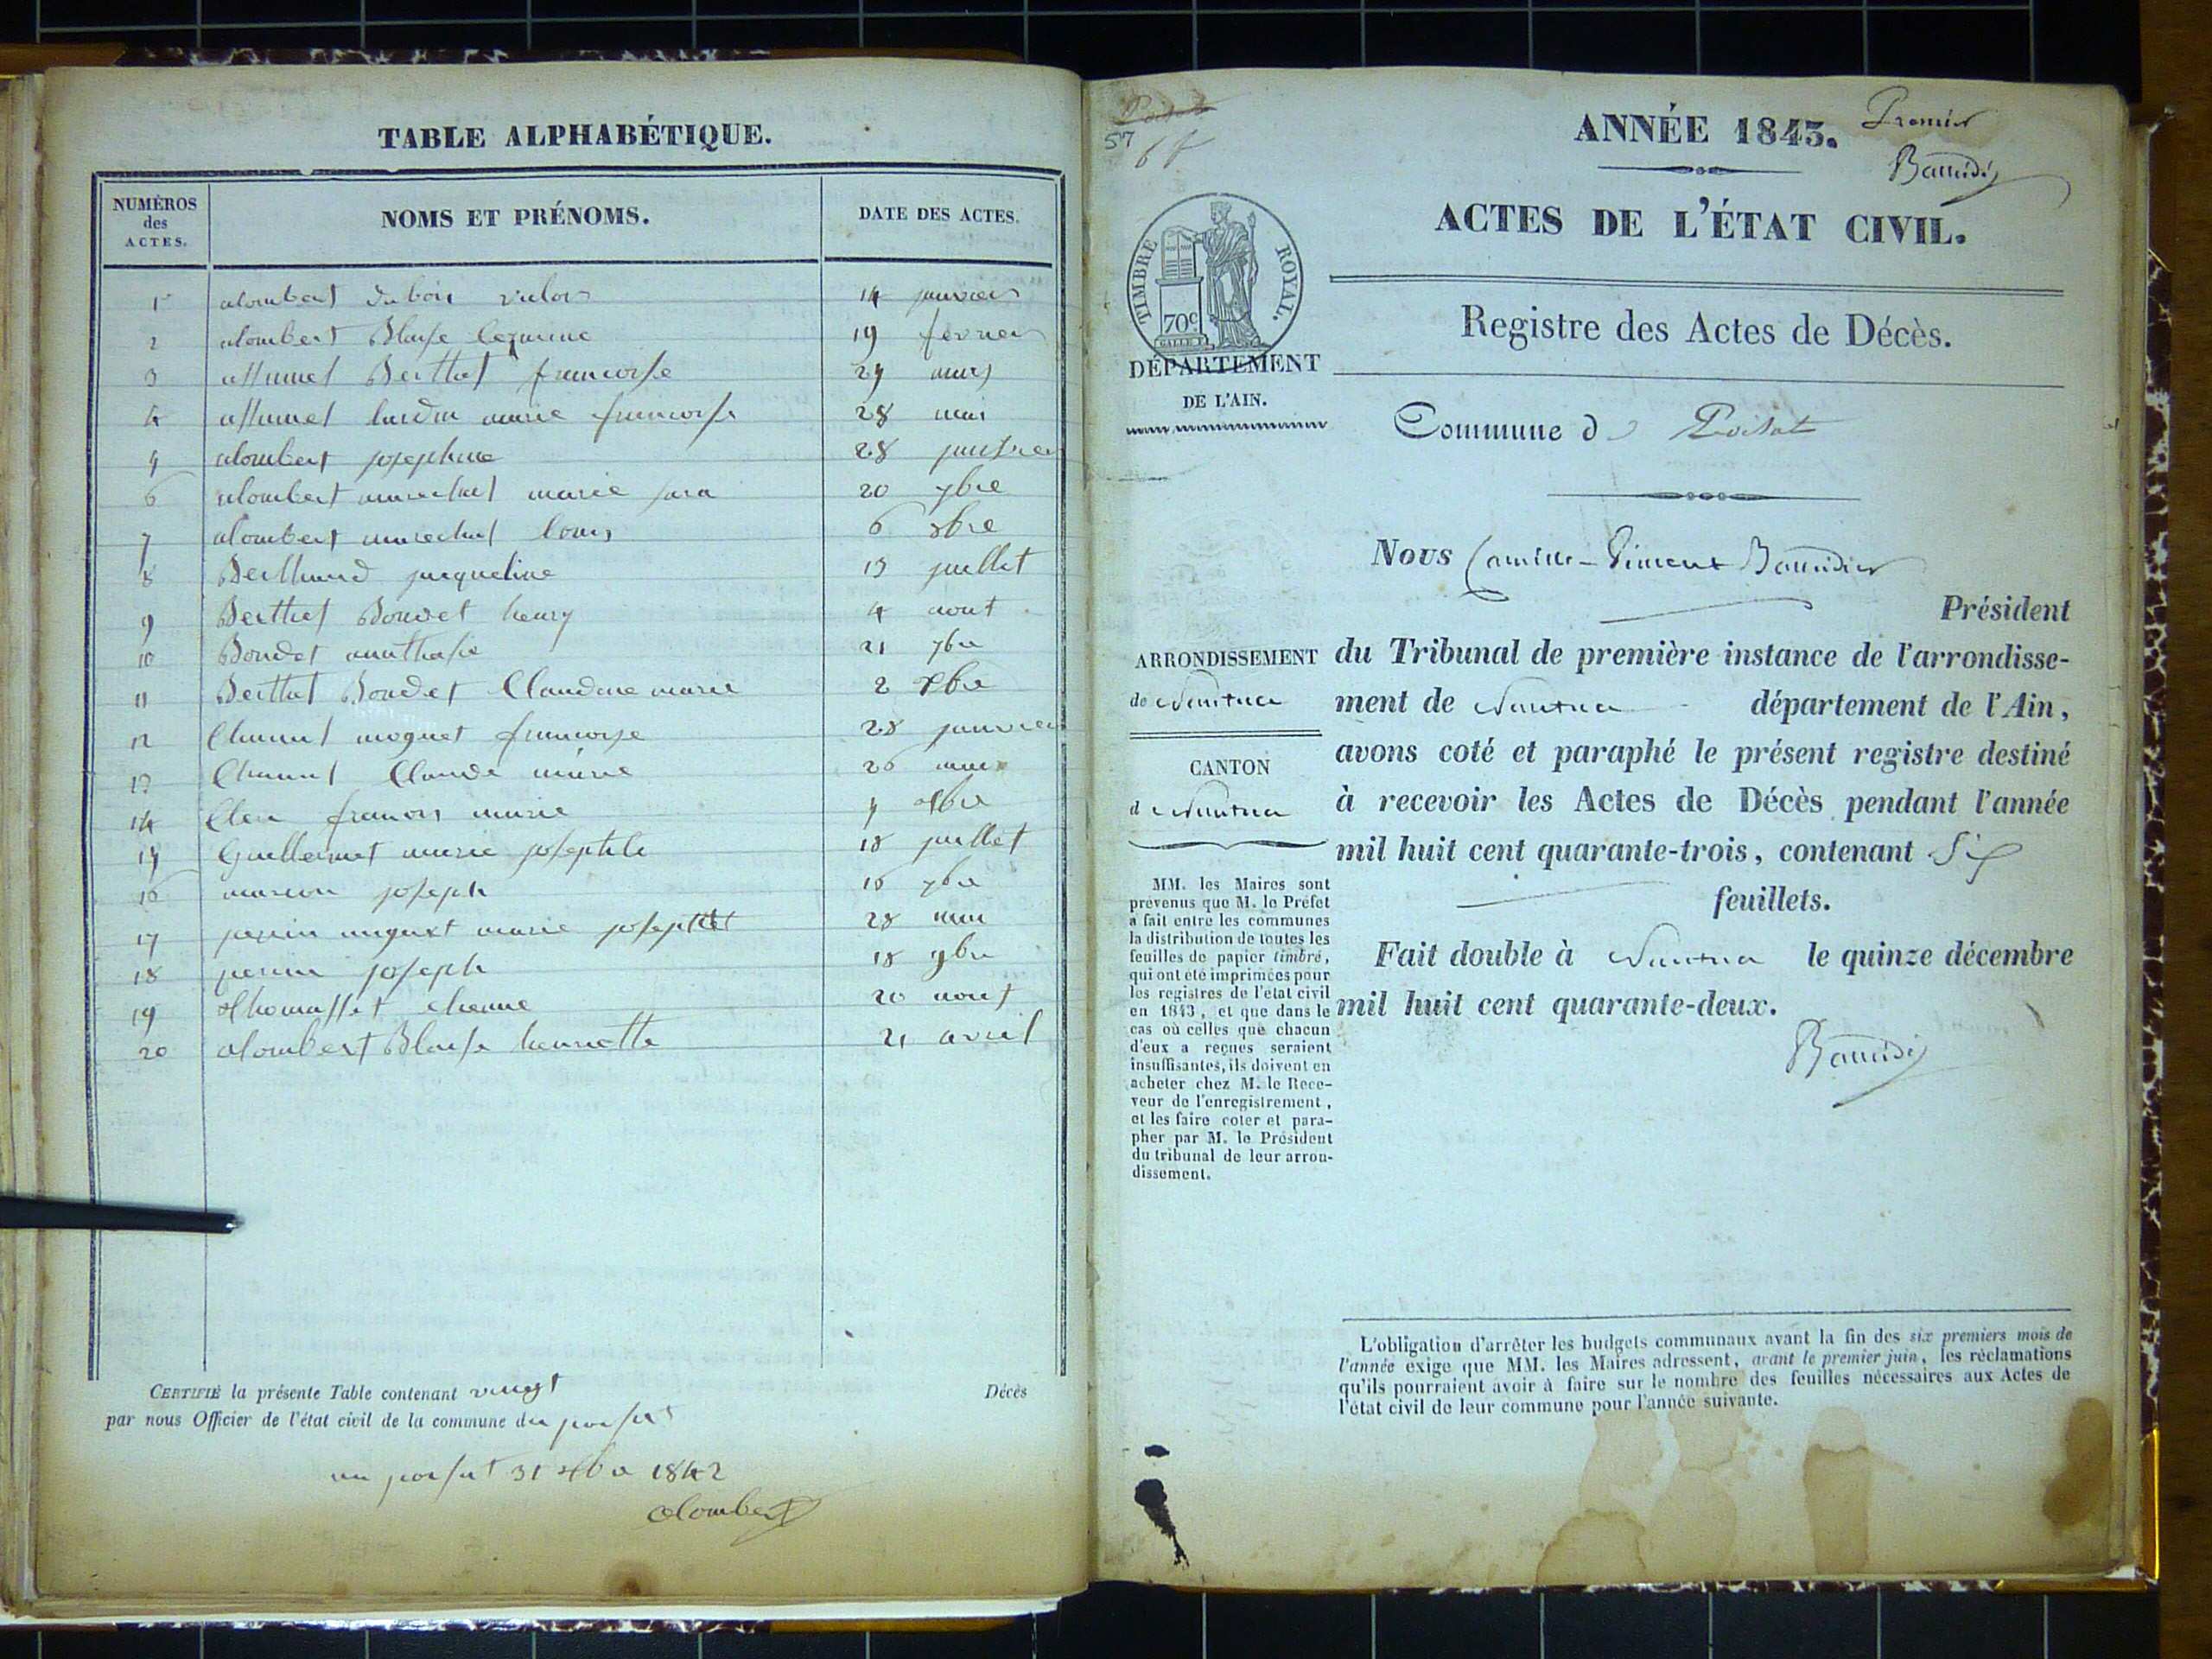 TABLE ALPHABÉTIQUE.
NUMÉROS
des
ACTES.
NOMS ET PRÉNOMS.
DATE DES ACTES.
1 alombert dubois 14 janvier
2 alombert Blaise 19 fevrier
3 assumel Berthet francoise 29 mars
4 assumel lurdin marie francoise 28 mai
5 alombert josephine 28 janvier
6 alombert marechal marie 20 7bre
7 alombert marechal louis 6 8bre
8 Berthand jacqueline 13 juillet
9 Berthet Boudet henry 4 aout
10 Boudet anathasie 21 7bre
11 Berthet Boudet Claudine marie 2 Xbre
12 Chanel moguet francoise 28 janvier
13 Chanel Claude marie 26
14 francois marie
15 Guillermet marie josephte 18 juillet
16 marion joseph 16 7bre
17 perrin marie josephte 28
18 perrin joseph 18 9bre
19 thomasset 20 aout
20 alombert Blaise henriette 21 avril
CERTIFIÉ la présente Table contenant vingt Décès
par nous Officier de l'état civil de la commune du poisat
au poisat 31 Xbre 1842
alombert
57
ANNÉE 1843.
Premier
Baudier
ACTES DE L'ÉTAT CIVIL.
TIMBRE ROYAL.
70c
Registre des Actes de Décès.
DÉPARTEMENT
DE L'AIN.
Commune d Poisat
Nous Camille-Vincent
Président
ARRONDISSEMENT
de Nantua
CANTON
d Nantua
du Tribunal de première instance de l'arrondisse-
ment de Nantua département de l'Ain,
avons coté et paraphé le présent registre destiné
à recevoir les Actes de Décès pendant l'année
mil huit cent quarante-trois, contenant Six
feuillets.
Fait double à Nantua le quinze décembre
mil huit cent quarante-deux.
MM. les Maires sont
prévenus que M. le Préfet
a fait entre les communes
la distribution de toutes les
feuilles de papier timbré,
qui ont été imprimées pour
les registres de l'état civil
en 1843, et que dans le
cas où celles que chacun
d'eux a reçues seraient
insuffisantes, ils doivent en
acheter chez M. le Rece-
veur de l'enregistrement,
et les faire coter et para-
pher par M. le Président
du tribunal de leur arron-
dissement.
L'obligation d'arrêter les budgets communaux avant la fin des six premiers mois de
l'année exige que MM. les Maires adressent, avant le premier juin, les réclamations
qu'ils pourraient avoir à faire sur le nombre des feuilles nécessaires aux Actes de
l'état civil de leur commune pour l'année suivante.